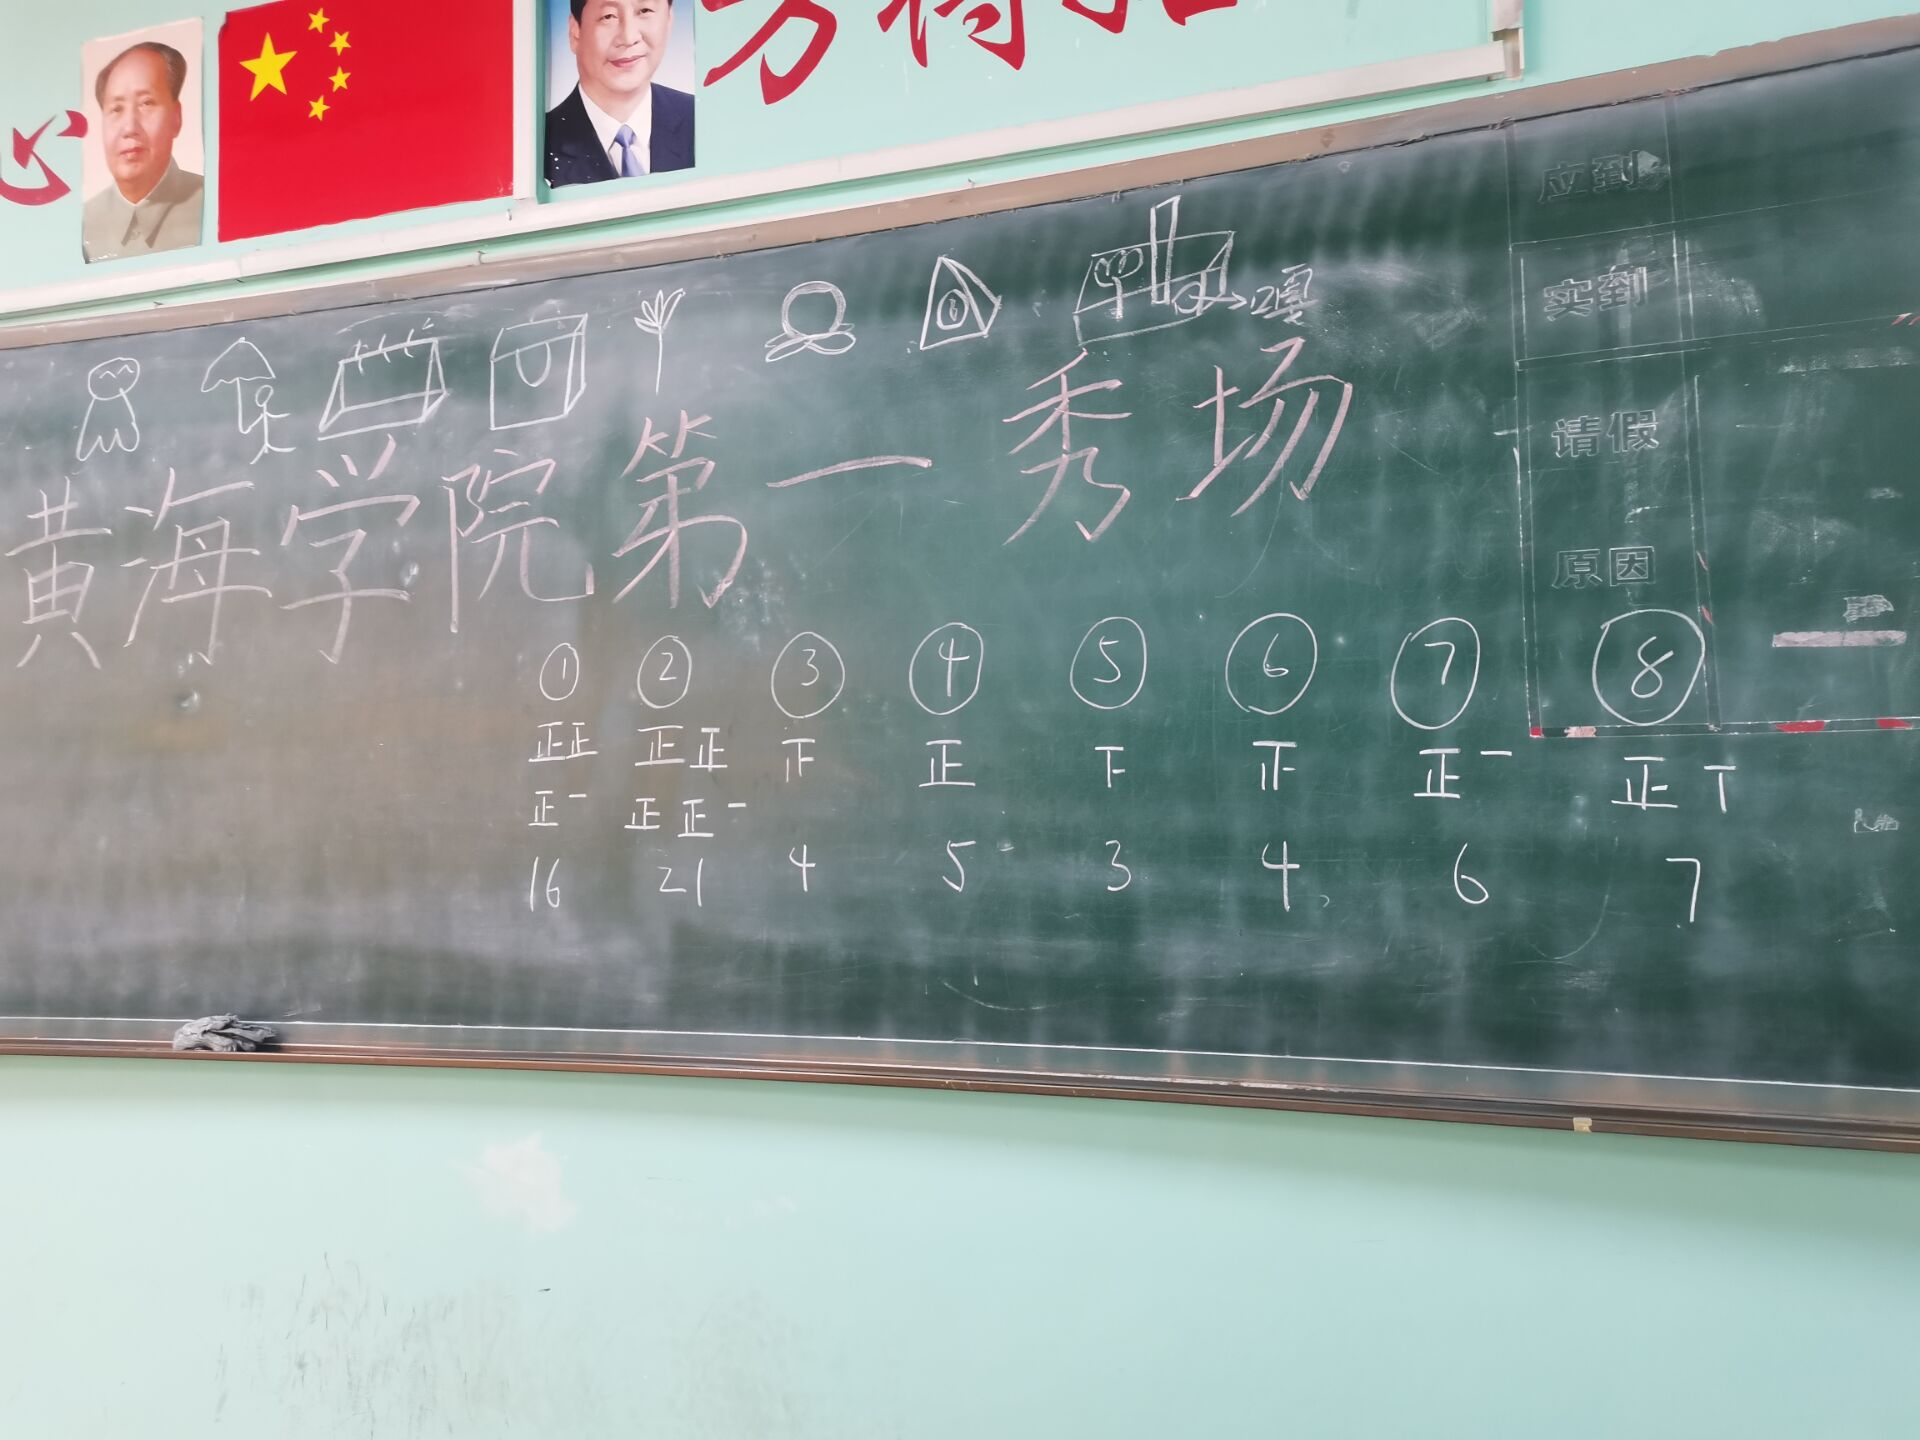 心
方得
应到
实到
请假
原因
黄海学院第一秀场
① ② ③ ④ ⑤ ⑥ ⑦ ⑧
正正 正正 正 正 下 正 正一 正丅
正一 正正一
16 21 4 5 3 4 6 7